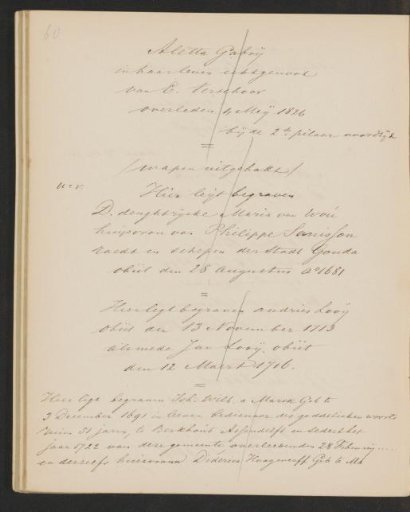 60
Aletta Gabrij
in haar leven echtgenoot
van E. Verschoor
overleden 4 Meij 1826
bij de 2de pilaar noordzijde
(wapen uitgehakt)
Hier leijt begraven
D. deughtrycke Maria van
huysvrou van Philippe
raedt en schepen der Stadt Gouda
obiit den 28 Augustus Ao 1681
Hier legt begraven Andries Looij
obiit den 13 November 1713
als mede Jan Looij, obiit
den 12 Maert 1716.
Hier legt begraven Joh. Wilh. a Marck Geb. te
3 December 1691 in leven bedienaar des goddelijken woords
ruim 31 jaren, te Berkhout Assendelft en sedert het
jaar 1722 van deze gemeente overleeden den 28 February
en derzelfs huisvrouw Diderica Hoogwerff Geb. te